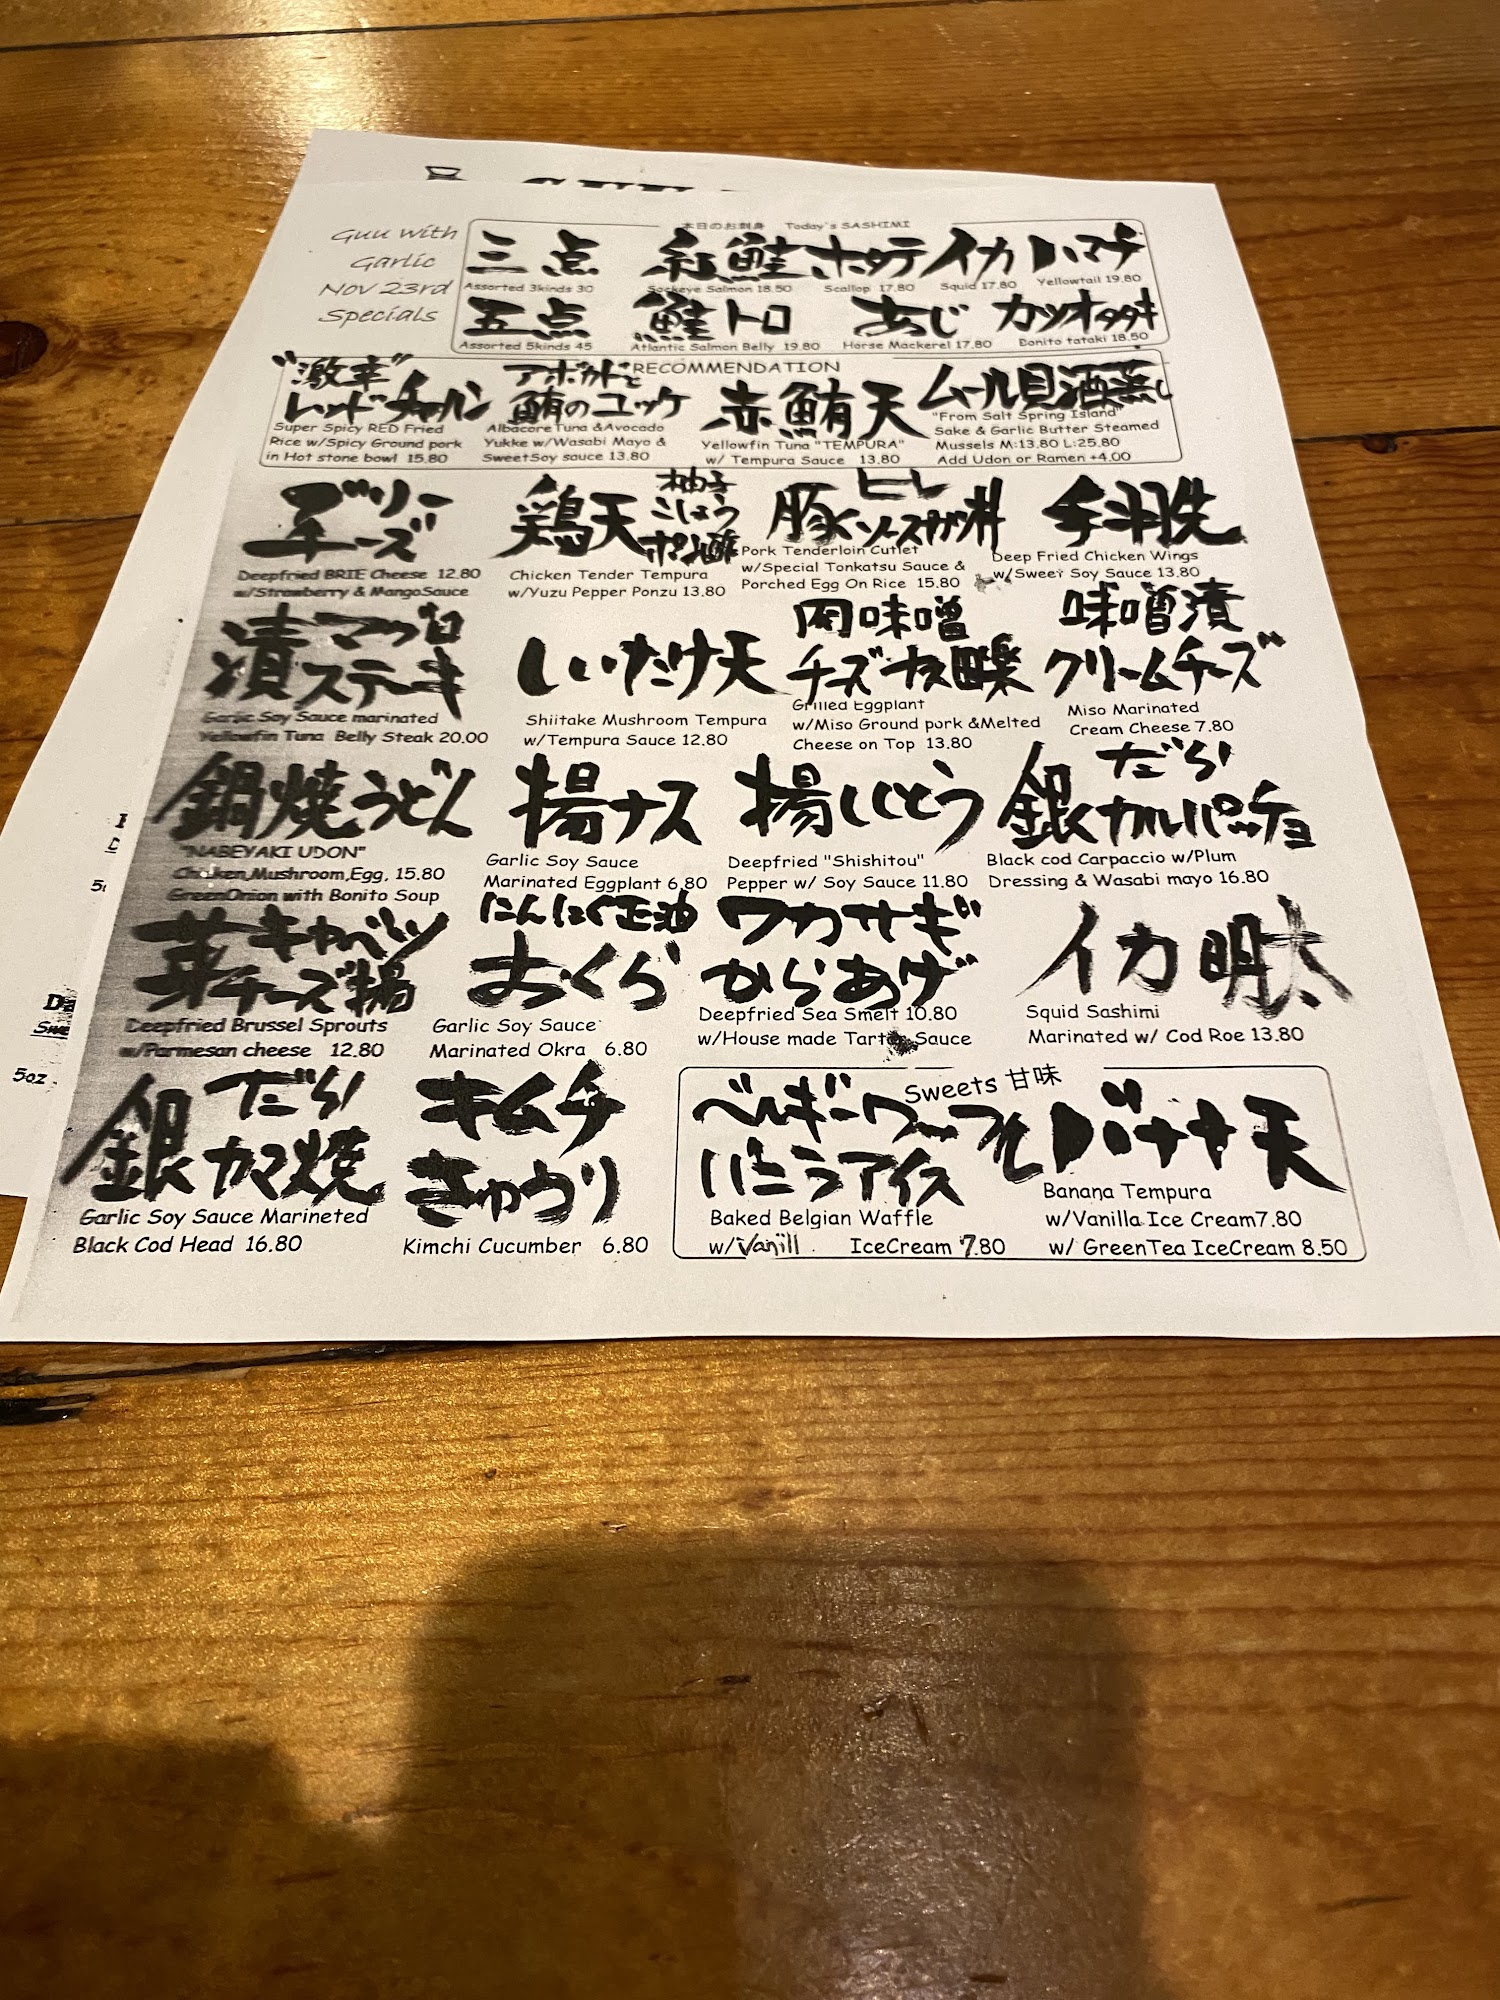 Guu with
Garlic
Nov 23rd
Specials
本日のお刺身 Today's SASHIMI
三点 紅鮭 ホタテ イカ ハマチ
Assorted 3kinds 30 Sockeye Salmon 18.50 Scallop 17.80 Squid 17.80 Yellowtail 19.80
五点 鮭トロ あじ カツオタタキ
Assorted 5kinds 45 Atlantic Salmon Belly 19.80 Horse Mackerel 17.80 Bonito tataki 18.50
RECOMMENDATION
"激辛"
レッドチャーハン
Super Spicy RED Fried
Rice w/Spicy Ground pork
in Hot stone bowl 15.80
アボカドと
鮪のユッケ
Albacore Tuna & Avocado
Yukke w/Wasabi Mayo &
SweetSoy sauce 13.80
赤鮪天
Yellowfin Tuna "TEMPURA"
w/ Tempura Sauce 13.80
ムール貝酒蒸し
"From Salt Spring Island"
Sake & Garlic Butter Steamed
Mussels M:13.80 L:25.80
Add Udon or Ramen +4.00
ブリー
チーズ
Deepfried BRIE Cheese 12.80
w/Strawberry & MangoSauce
鶏天 柚子
こしょう
ポン酢
Chicken Tender Tempura
w/Yuzu Pepper Ponzu 13.80
豚ヒレ
ソースカツ丼
Pork Tenderloin Cutlet
w/Special Tonkatsu Sauce &
Porched Egg On Rice 15.80
手羽先
Deep Fried Chicken Wings
w/Sweet Soy Sauce 13.80
漬マグロ
ステーキ
Garlic Soy Sauce marinated
Yellowfin Tuna Belly Steak 20.00
しいたけ天
Shiitake Mushroom Tempura
w/Tempura Sauce 12.80
肉味噌
チーズナス田楽
Grilled Eggplant
w/Miso Ground pork &Melted
Cheese on Top 13.80
味噌漬
クリームチーズ
Miso Marinated
Cream Cheese 7.80
鍋焼うどん
"NABEYAKI UDON"
Chicken,Mushroom,Egg, 15.80
GreenOnion with Bonito Soup
揚ナス
Garlic Soy Sauce
Marinated Eggplant 6.80
揚ししとう
Deepfried "Shishitou"
Pepper w/ Soy Sauce 11.80
銀だら
カルパッチョ
Black cod Carpaccio w/Plum
Dressing & Wasabi mayo 16.80
芽キャベツ
チーズ揚
Deepfried Brussel Sprouts
w/Parmesan cheese 12.80
にんにく正油
おくら
Garlic Soy Sauce
Marinated Okra 6.80
ワカサギ
からあげ
Deepfried Sea Smelt 10.80
w/House made Tarter Sauce
イカ明太
Squid Sashimi
Marinated w/ Cod Roe 13.80
銀だら
カマ焼
Garlic Soy Sauce Marineted
Black Cod Head 16.80
キムチ
きゅうり
Kimchi Cucumber 6.80
Sweets 甘味
ベルギーワッフル
バニラアイス
Baked Belgian Waffle
w/Vanill IceCream 7.80
バナナ天
Banana Tempura
w/Vanilla Ice Cream7.80
w/ GreenTea IceCream 8.50
5oz